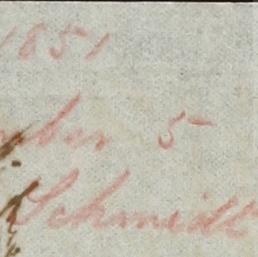 1851
mber 5
Schmidt